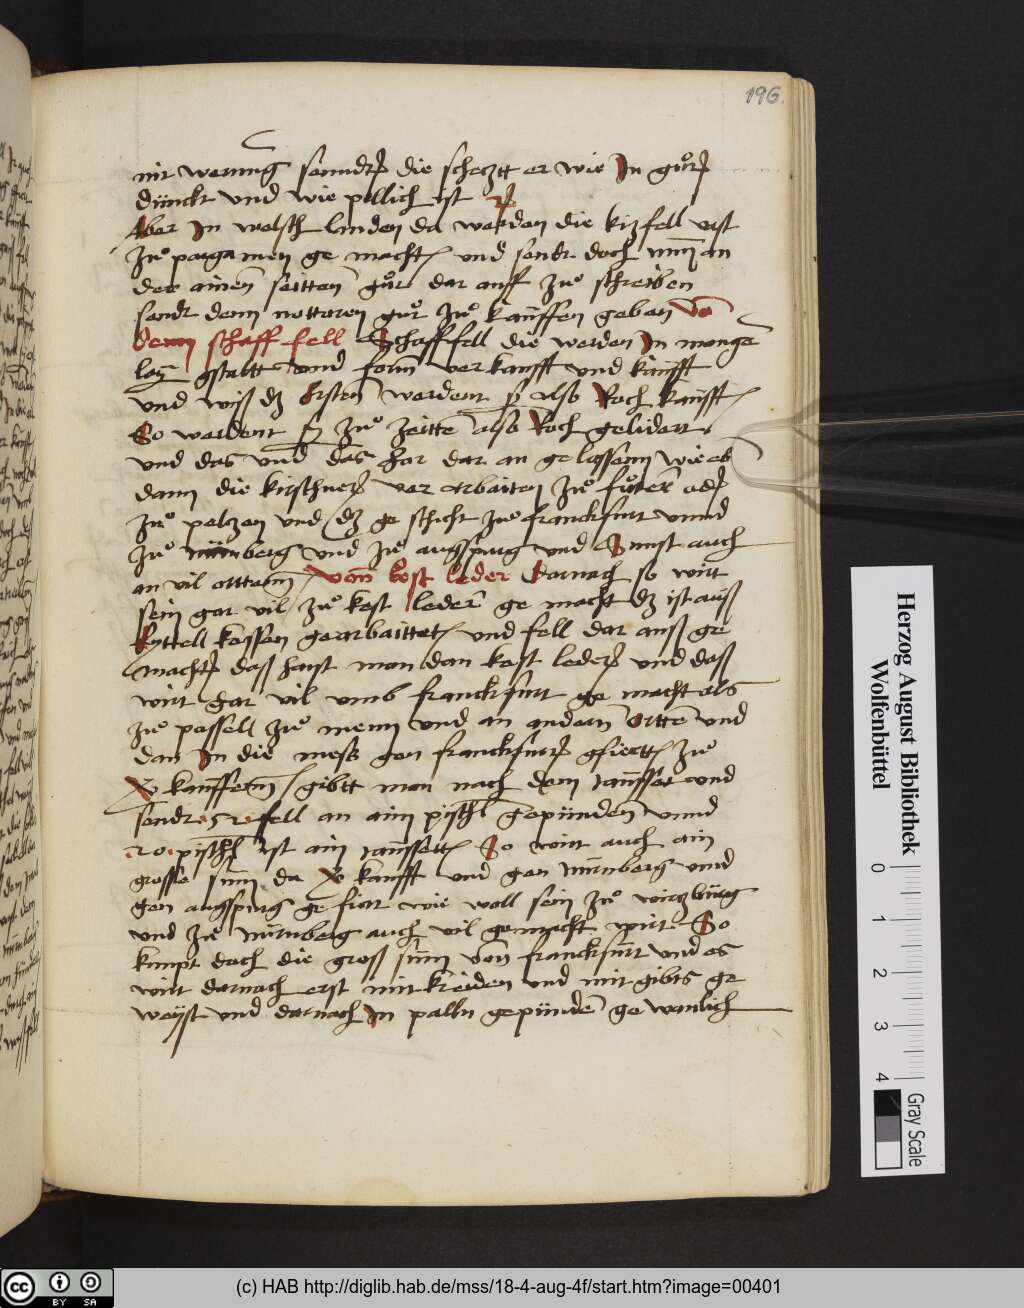 196
nit werung sonndr die schetztt er wie In gůtt
dünckt und wie pillich ist
Aber In welsch landen da werden die kizfell vast
Zů pargamen ge macht und sendt doch nun an
der ainen seitten gůt dar auff zů schreiben
sendt denn nottaren gůt zů kauffen geben Von
denn schaff fell Schaff fell die werden In menge
lay gstaltt und form verkaufft und kaufft
und wiß dz Ersten werdent sy also Roch kaufft
So werdent sy zů zeitte also Roch gelidert
und das und das har dar an gelassenn wie es
dann die kirschner ver arbaiten zů fůter oder
zů pelzen und dz ge schicht zů franckfurt unnd
zů nürnberg und zů augspurg und Sunst auch
an vil ortten Vonn kost leder Darnach so wirt
sein gar vil zů kost leder ge macht dz ist auß
kyttell kessen gearbaittet und fell dar auß ge
macht daß haist man dan kost leder und daß
wirt gar vil umb franckfurt ge macht als
zů passell zů menn und an andern Ortten und
dan In die mess gen franckfurt gfiertt zů
kauffenn gibtt man nach dem tausset und
sendt 52 fell an aim pischl gepünden unnd
20 pischl ist ain taussett So wirt auch ain
grosse sum da kaufft und gen nürnberg unnd
gen augspurg ge firt wie woll sein zů wirzburg
und zů nürnberg auch vil gemacht wirt So
kumpt doch die groß sum von franckfurt und es
wirt darnach erst mit kreiden und mit gibts ge
weyst und darnach In palln gepünden ge wonlich
Herzog August Bibliothek
Wolfenbüttel
0 1 2 3 4
Gray Scale
cc BY SA
(c) HAB http://diglib.hab.de/mss/18-4-aug-4f/start.htm?image=00401